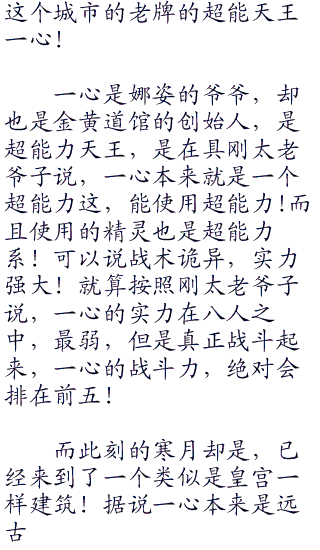 这个城市的老牌的超能天王
一心！
一心是娜姿的爷爷，却
也是金黄道馆的创始人，是
超能力天王，是在具刚太老
爷子说，一心本来就是一个
超能力这，能使用超能力!而
且使用的精灵也是超能力
系！可以说战术诡异，实力
强大！就算按照刚太老爷子
说，一心的实力在八人之
中，最弱，但是真正战斗起
来，一心的战斗力，绝对会
排在前五！
而此刻的寒月却是，已
经来到了一个类似是皇宫一
样建筑！据说一心本来是远
古